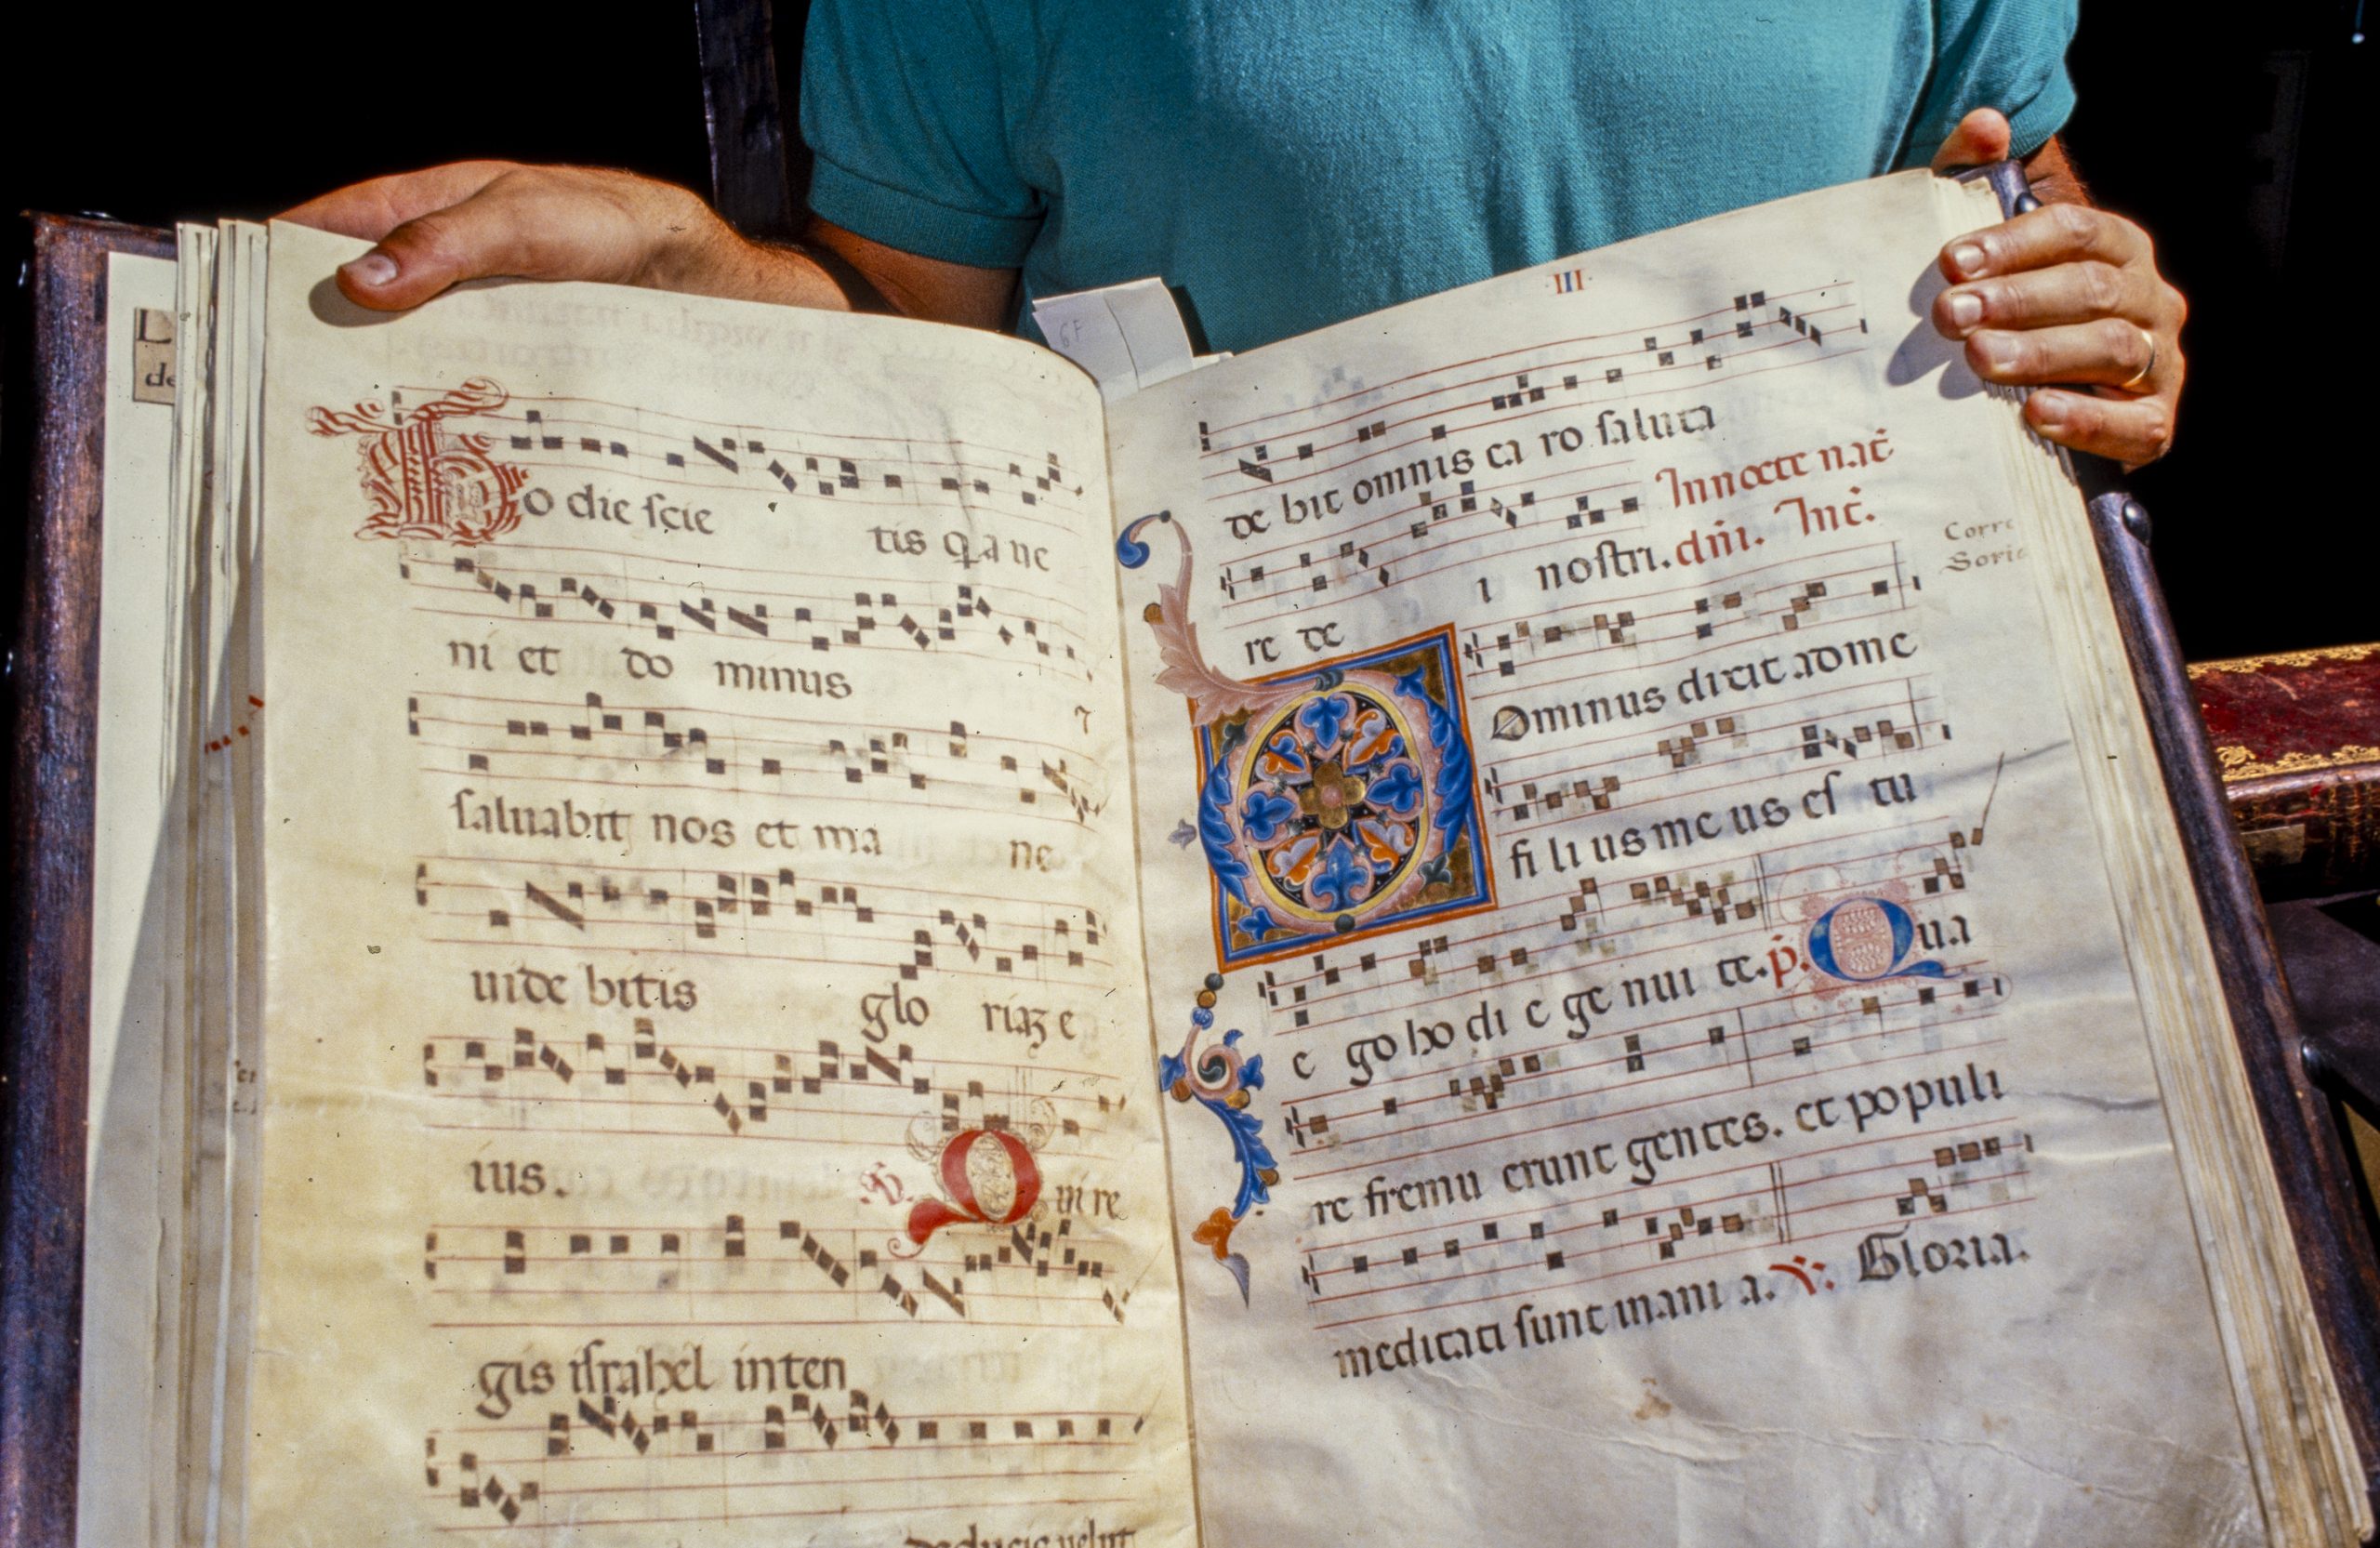 Ho die scie tis q̄a ue
ni et do minus
saluabit nos et ma ne
uide bitis glo riaʒ e
ius. ℣. Qui re
gis israhel inten
deducis uelut
6F
III
de bit omnis ca ro saluta
re de i nostri. In nocte nat̄
dn̄i. Int̄.
Dominus dixit adme
fi li us me us es tu
e go ho di e ge nui te. p̄. Qua
re fremu erunt gentes. et populi
meditati sunt inani a. ℣. Gloria.